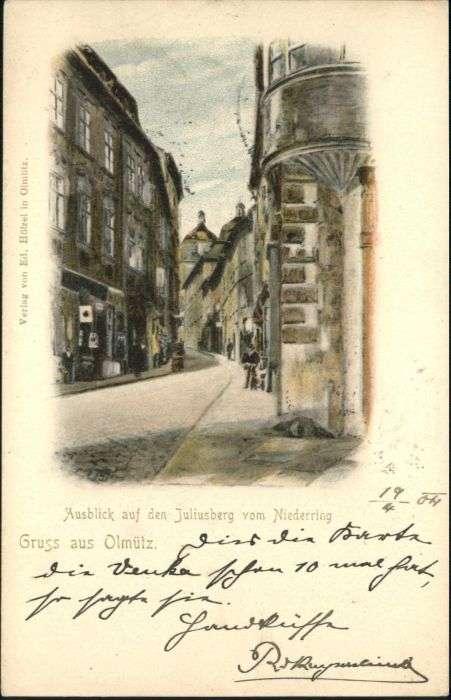 Verlag von Ed. Hölzel in Olmütz.
Ausblick auf den Juliusberg vom Niederring
Gruss aus Olmütz.
19/4 04
Dies die Karte
die Venka schon 10 mal hat,
so sagte sie.
Handküsse